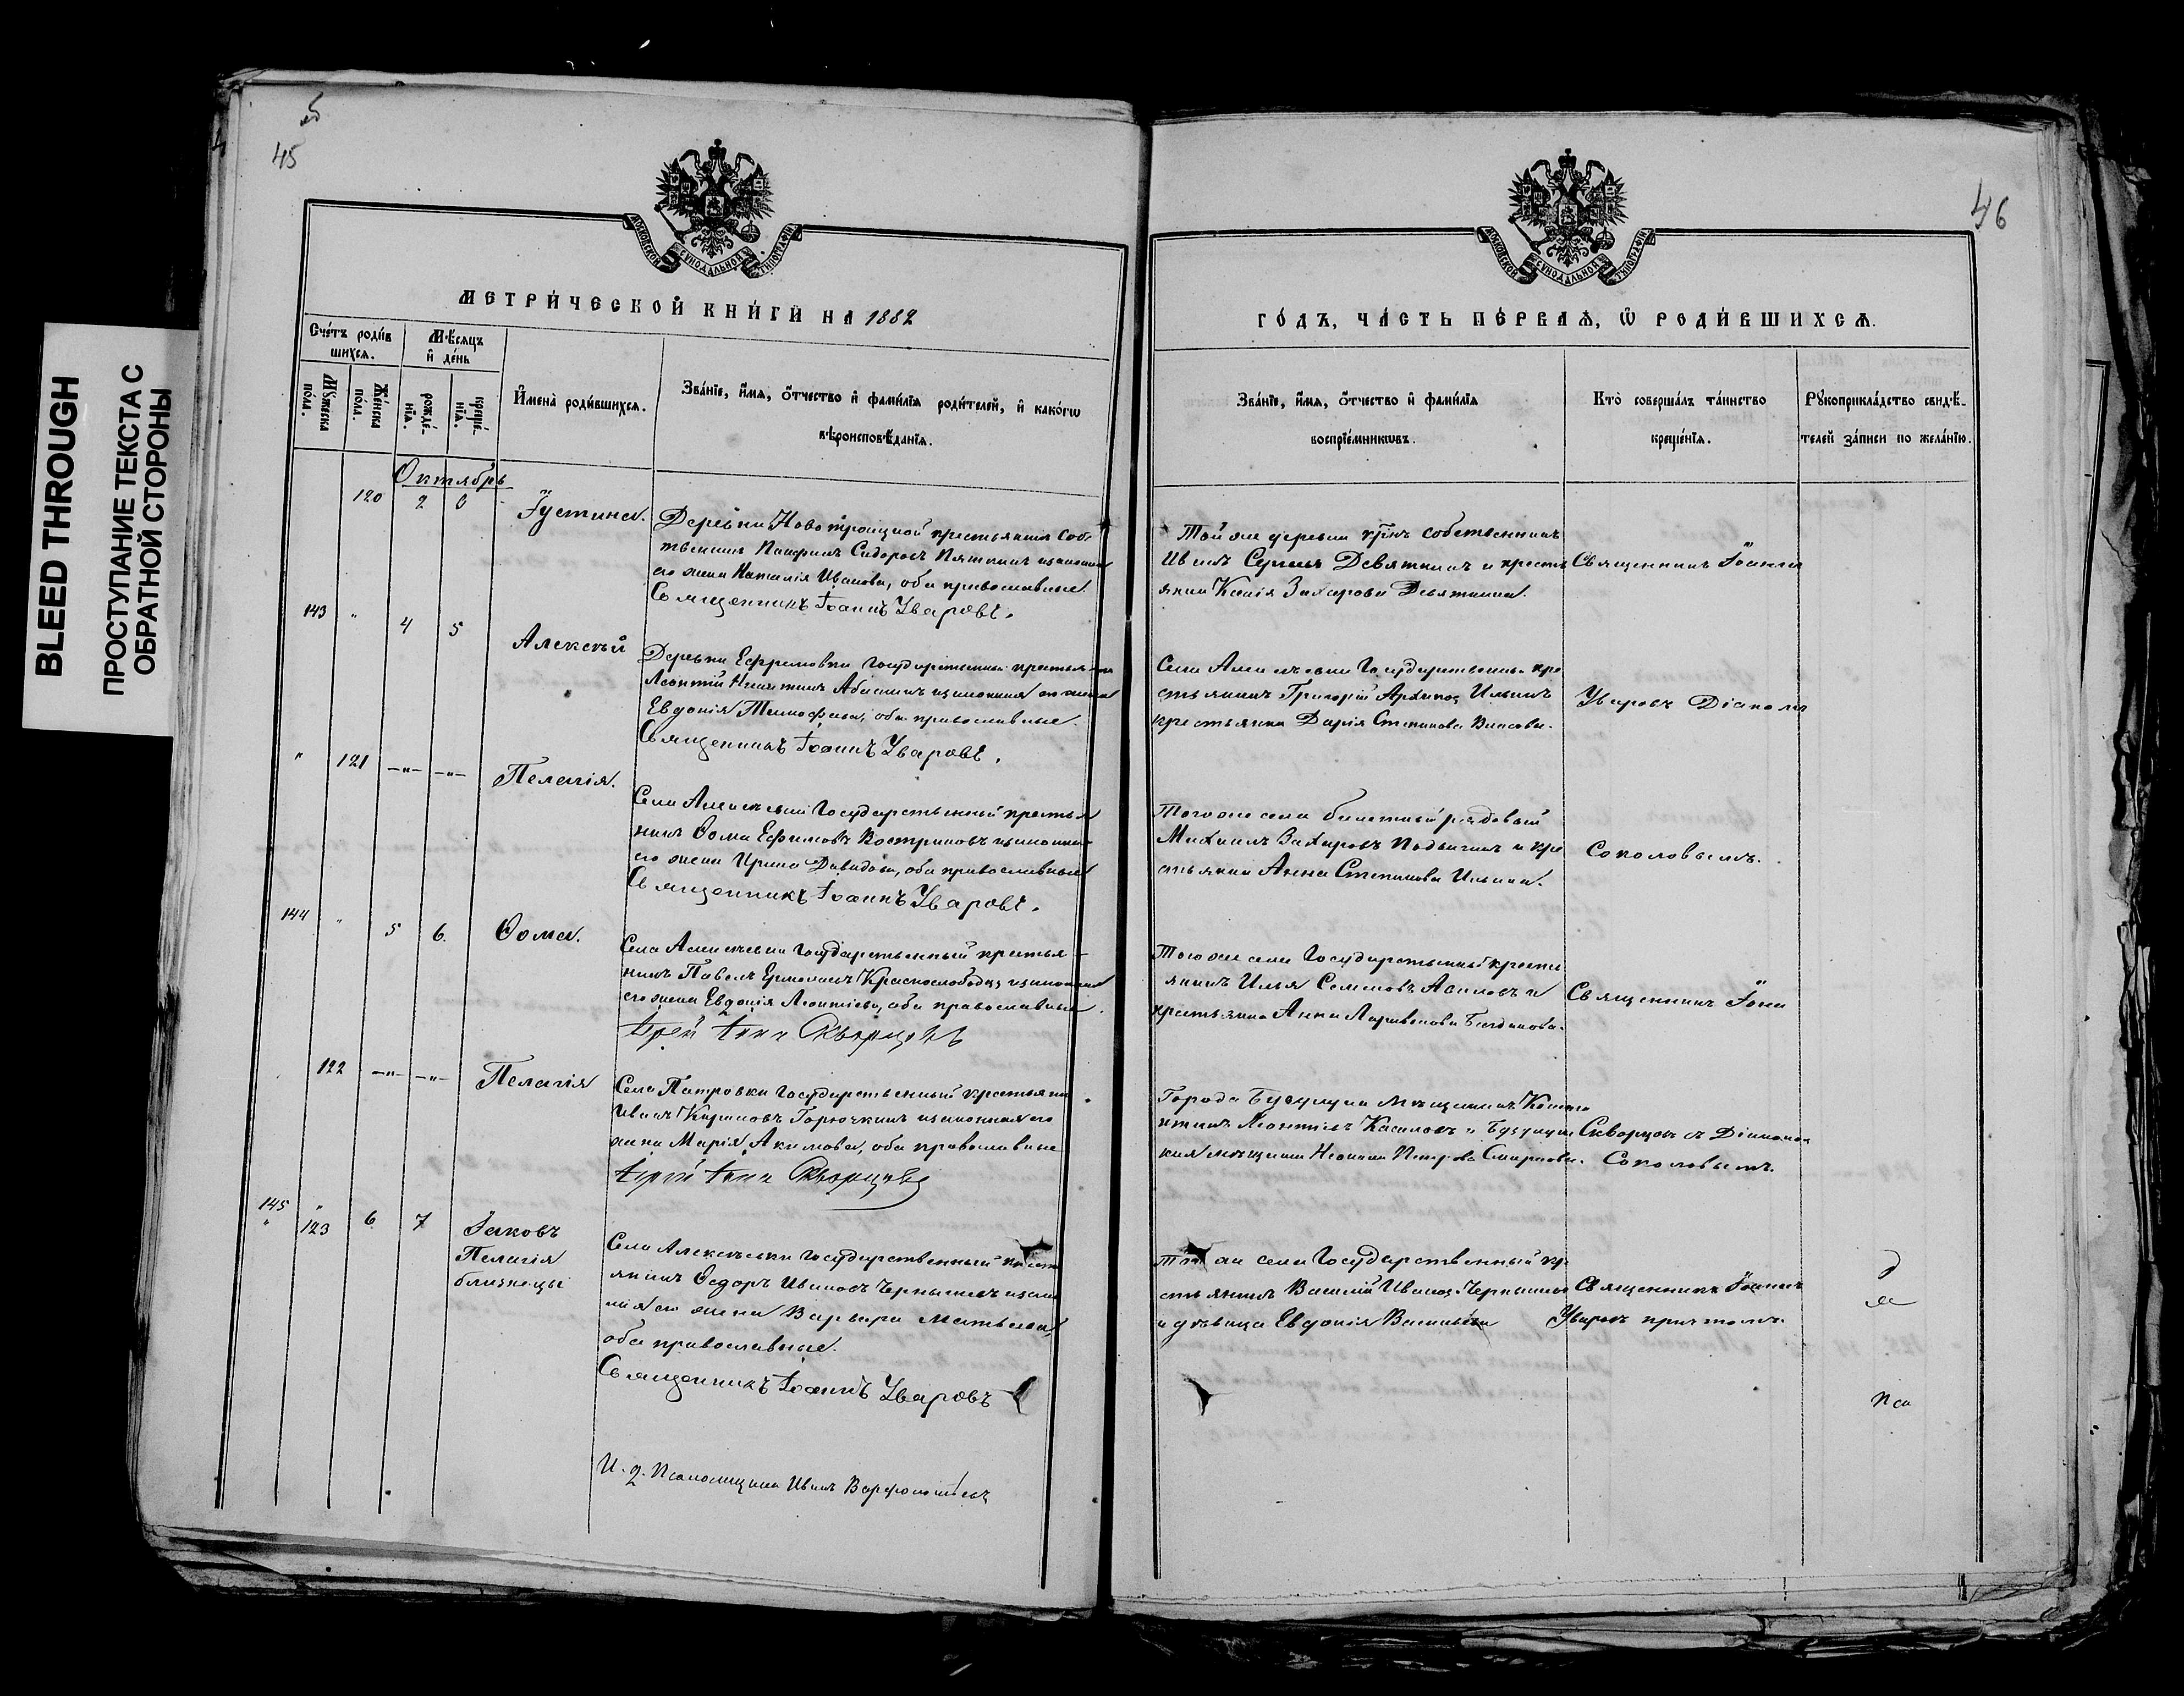 BLEED THROUGH
ПРОСТУПАНИЕ ТЕКСТА С
ОБРАТНОЙ СТОРОНЫ
45
МОСКОВСКОЙ СѴНОДАЛЬНОЙ ТИПОГРАФІИ
МЕТРИ́ЧЕСКОЙ КНИ́ГИ НА 1882
Сче́тъ роди́в
шихсѧ.
Мѣ́сяцъ
и҆ де́нь
Мꙋ́жеска
по́ла.
Же́нска
по́ла.
рожде́-
нїѧ.
креще́-
нїѧ.
И҆мена̀ роди́вшихсѧ.
Зва́нїе, и҆́мѧ, ѻ҆́тчество и҆ фами́лїѧ роди́телей, и҆ како́гѡ
вѣроисповѣ́данїѧ.
Октябрь
120 2
Іустина.
Деревни Новотроицкой крестьянинъ Собс
твенникъ Сидоровъ
его жена Наталія Иванова, оба православные
Священникъ Іоаннъ Уваровъ.
143 " 4 5
Алексѣй
Деревни Ефремовки Государственный крестьянинъ
Леонтій и законная его жена
Евдокія Тимофеева, оба православные.
Священникъ Іоаннъ Уваровъ.
" 121 -"- -"-
Пелагія.
Села Алексѣевки Государственный крестья
нинъ Ѳома Ефимовъ Востриковъ и законная
его жена Ирина Давидова, оба православные
Священникъ Іоаннъ Уваровъ.
144 " 5 6.
Ѳома.
Села Алексѣевки Государственный крестья-
нинъ Павелъ Ермолаевъ Краснослободцъ и законная
его жена Евдокія Леонтіева, оба православные.
Іерей Іона Скворцовъ
122 -"- -"-
Пелагія
Села Патровки Государственный крестьянинъ
Иванъ Кириловъ Горючкинъ и законная его
жена Марія Акимова, оба православные
Іерей Іона Скворцовъ
145 "
" 123 6 7
Іаковъ
Пелагія
близнецы
Села Алексѣевки Государственный крест
янинъ Ѳедоръ Ивановъ Чернышевъ и закон
ная его жена Варвара Матвеева,
оба православные.
Священникъ Іоаннъ Уваровъ
И. д. Псаломщика Иванъ Варфоломѣевъ
46
МОСКОВСКОЙ СѴНОДАЛЬНОЙ ТИПОГРАФІИ
ГО́ДЪ, ЧА́СТЬ ПЕ́РВАѦ, Ѡ҆ РОДИ́ВШИХСѦ.
Зва́нїе, и҆́мѧ, ѻ҆́тчество и҆ фами́лїѧ
воспрїе́мникѡвъ.
Кто̀ соверша́лъ та́инство
креще́нїѧ.
Рꙋкоприкла́дство свидѣ́-
телей за́писи по жела́нїю.
Той же деревни собственникъ
Иванъ Девяткинъ и кресть
янка Захарова Девяткина.
Священникъ Іоаннъ
Села Алексѣевки Государственный кре
стьянинъ Григорій Архипов Ильинъ
крестьянка Дарія Степанова Власова.
Уваровъ Діакономъ
Того же села билетный рядовый
Михаилъ Захаровъ и кре
стьянка Анна Степанова Ильина.
Соколовымъ.
Того же села Государственный кресть
янинъ Илья Семеновъ и
крестьянка Анна
Священникъ Іона
Города Бузулука мѣщанинъ
Леонтіевъ и Бузулук
ская мѣщанка Петрова Смирнова.
Скворцовъ съ Діакономъ
Соколовымъ.
Того же села Государственный кр
стьянинъ Василій Иванов Чернышевъ
и дѣвица Евдокія Васильева
Священникъ Іоаннъ
Уваровъ причтомъ.